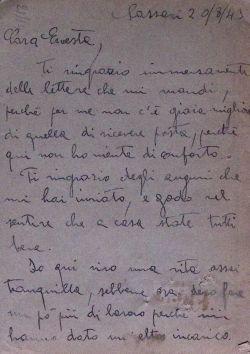 Sassari 20/8/43
Cara Ernesta,
Ti ringrazio immensamente
delle lettere che mi mandi,
perché per me non c'è gioia migliore
di quella di ricevere posta, perché
qui non ho niente di conforto.
Ti ringrazio degli auguri che
mi hai inviato, e godo nel
sentire che a casa state tutti
bene.
Io qui vivo una vita assai
tranquilla, sebbene ora devo fare
un pò più di lavoro perché mi
hanno dato un'altro incarico.